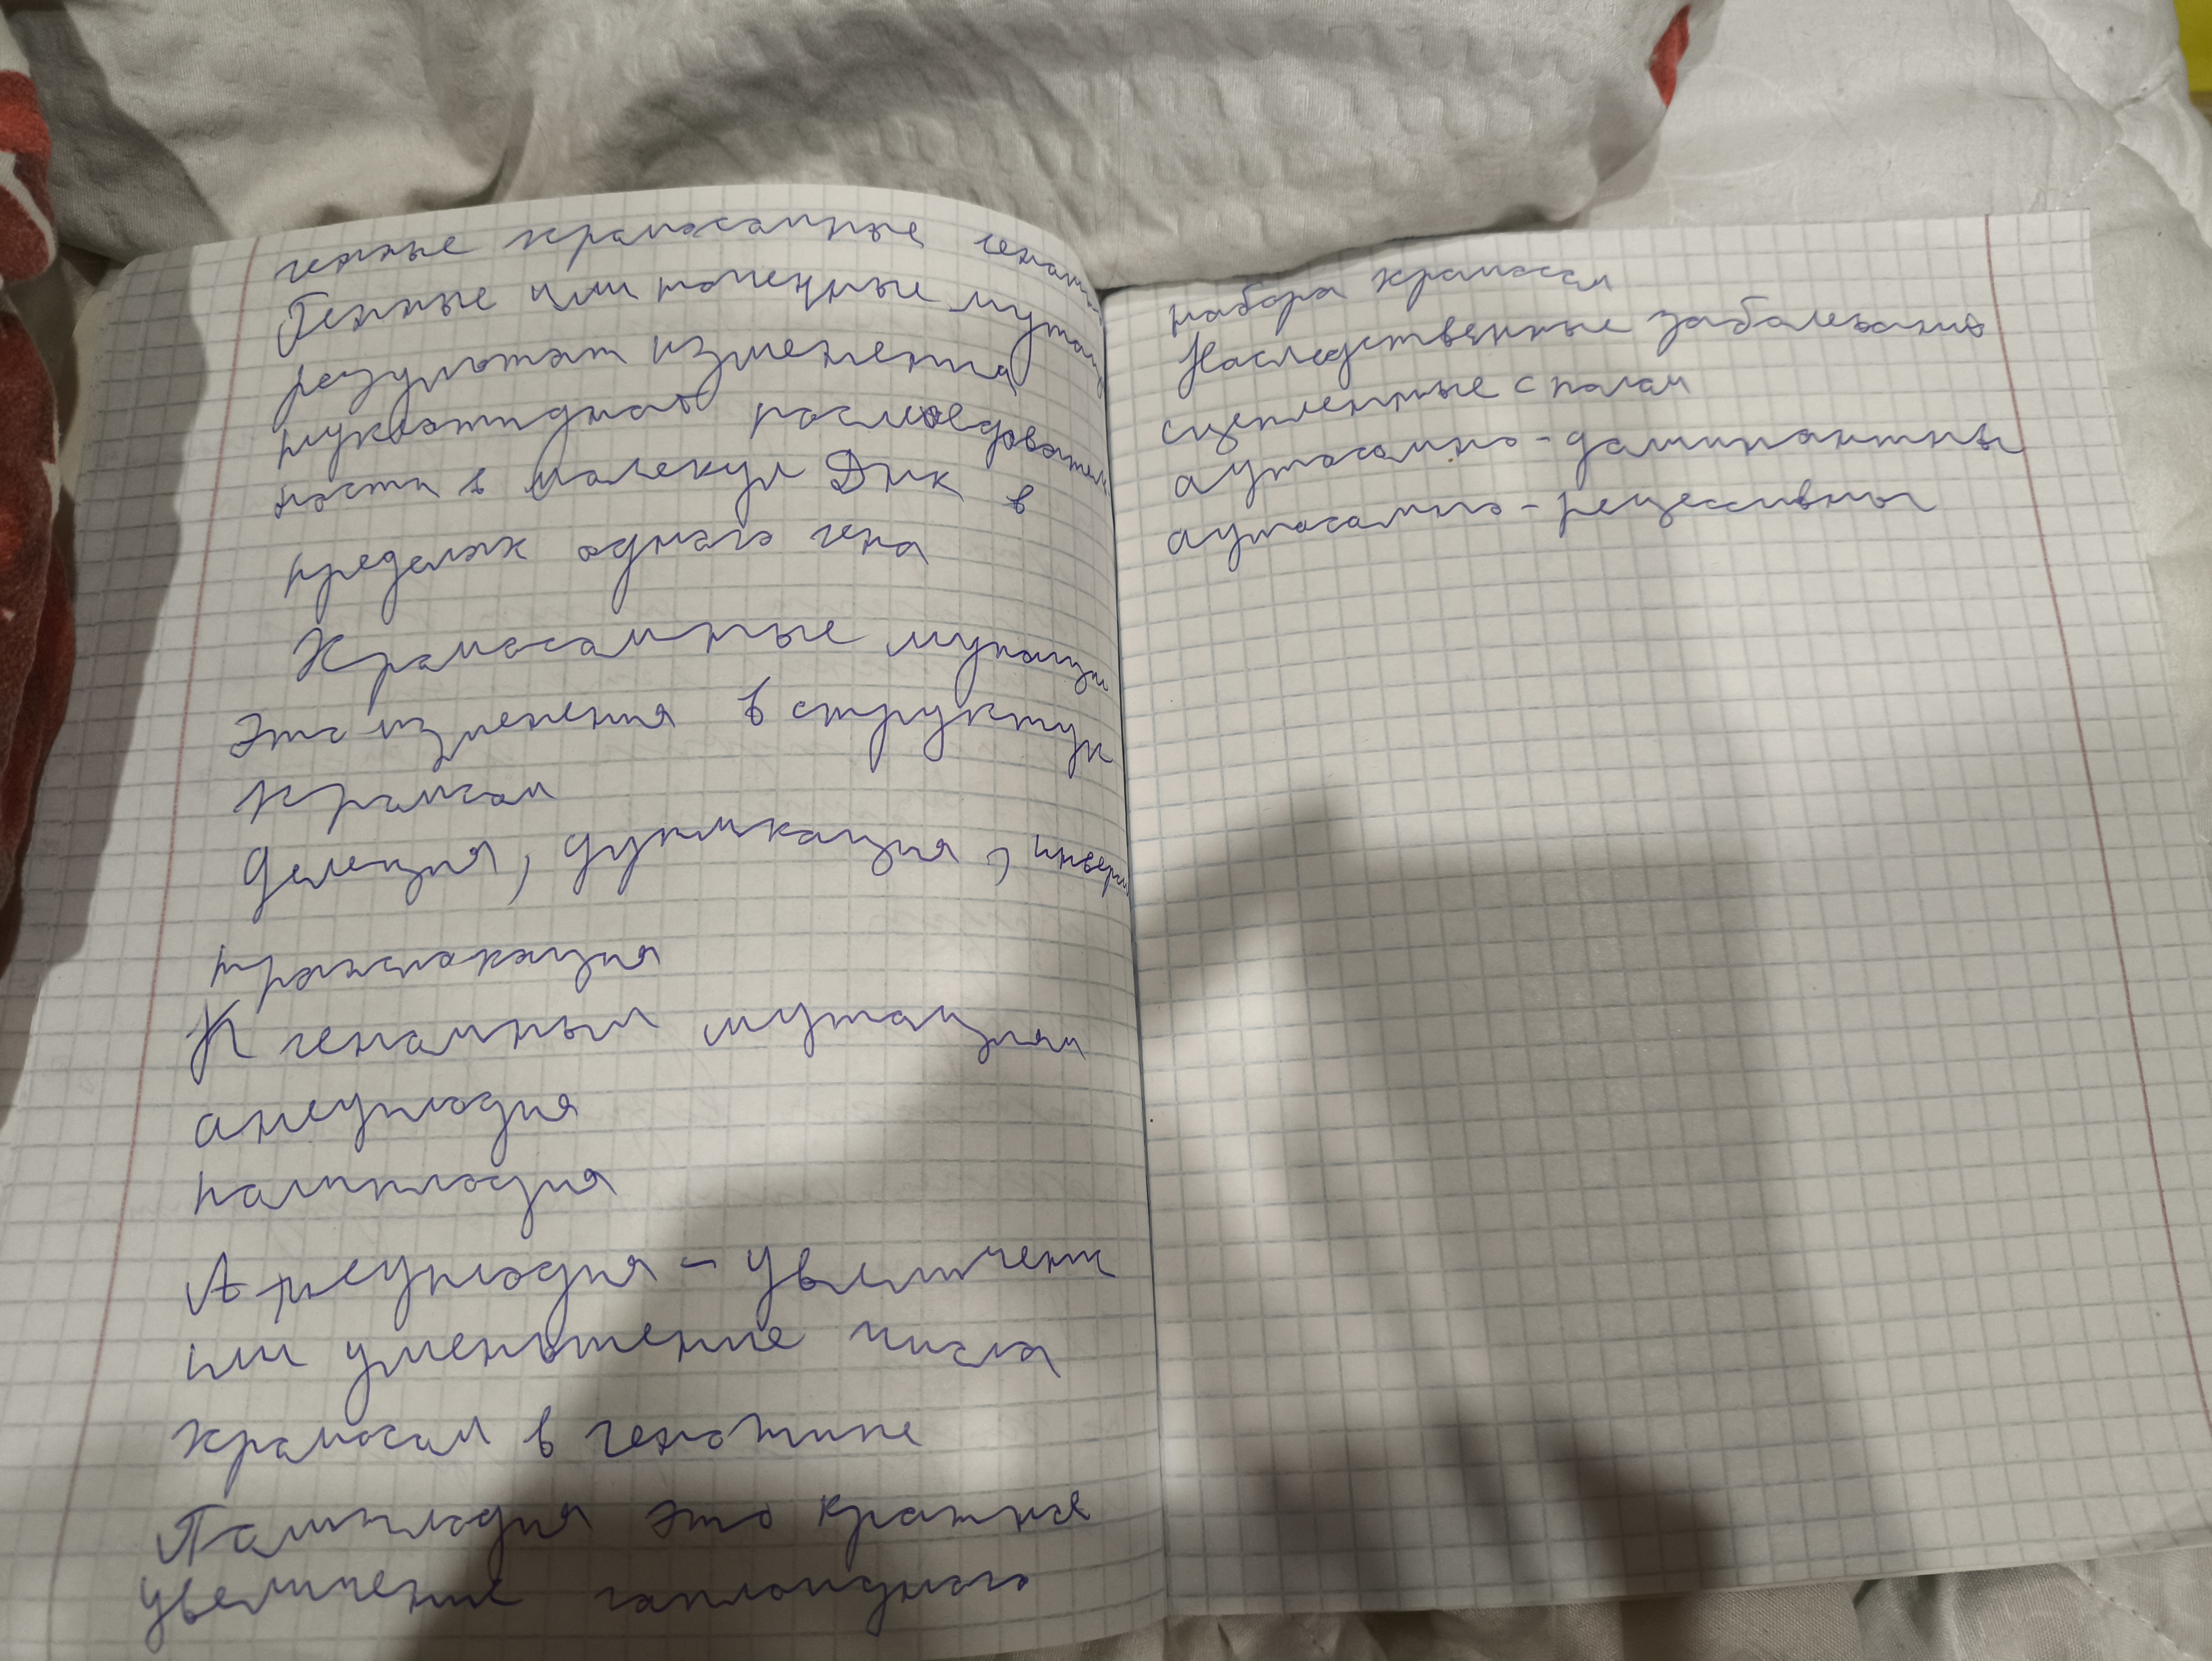 генные крамосамные генам
Генные или точечные мутац
результат изменения
нуклэтидной последователь
ности в молекул Днк в
пределах одного гена
Храмосамные мутации
это изменения в структук
храмсам
делеция, дупликация, инверс
транслокация
К генамным мутациям
анеуплодия
палиплодия
Анеуплодия - увеличени
или уменьшение числа
храмосам в генотипе
Палиплодия это кратное
увеличение гаплоидного
набора храмосам
Наследственные заболевания
сцепленные с палам
аутосамно-даминантны
аутосамно-рецессивны